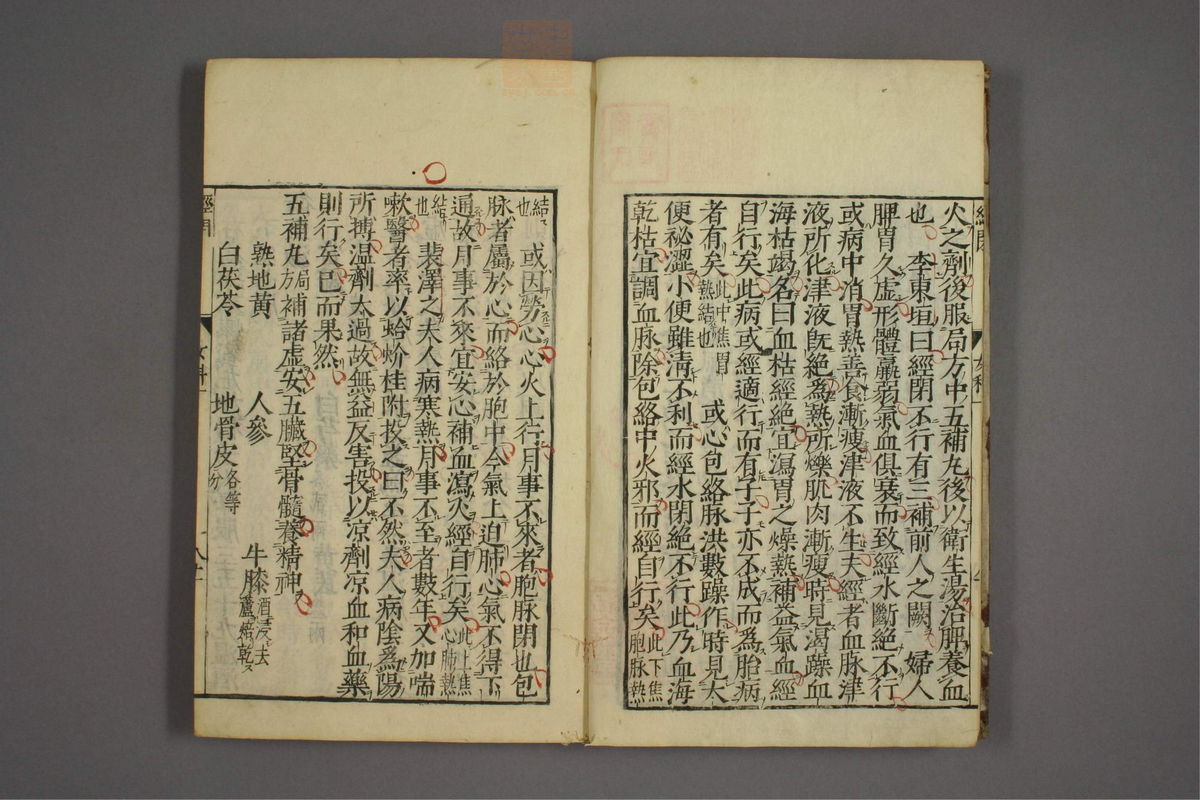 火之劑後服局方中五補丸後以衛生湯治脾養血
也　李東垣曰經閉不行有三補前人之闕　婦人
脾胃久虚形體羸弱氣血俱衰而致經水斷絕不行
或病中消胃熱善食漸瘦津液不生夫經者血脉津
液所化津液旣絶為熱所爍肌肉漸瘦時見渴躁血
海枯竭名曰血枯經絕宜瀉胃之燥熱補益氣血經
自行矣此病或經適行而有子子亦不成而為胎病
者有矣此中焦胃熱結也　或心包絡脉洪數躁作時見大
便秘澀小便雖淸不利而經水閉絕不行此乃血海
乾枯宜調血脉除包絡中火邪而經自行矣此下焦胞脉熱
結也　或因勞心心火上行月事不來者胞脉閉也包
脉者屬於心而絡於胞中今氣上迫肺心氣不得下
通故月事不來宜安心補血瀉火經自行矣此上焦心肺熱
結也　裴澤之夫人病寒熱月事不至者數年又加喘
嗽醫者率以蛤蚧桂附投之曰不然夫人病陰為陽
所搏温劑太過故無益反害投以凉劑凉血和血藥
則行矣已而果然
五補丸局方補諸虚安五臟堅骨髓養精神
熟地黄　人參　牛膝酒浸去蘆焙乾
白茯苓　地骨皮各等分
經閉
女科